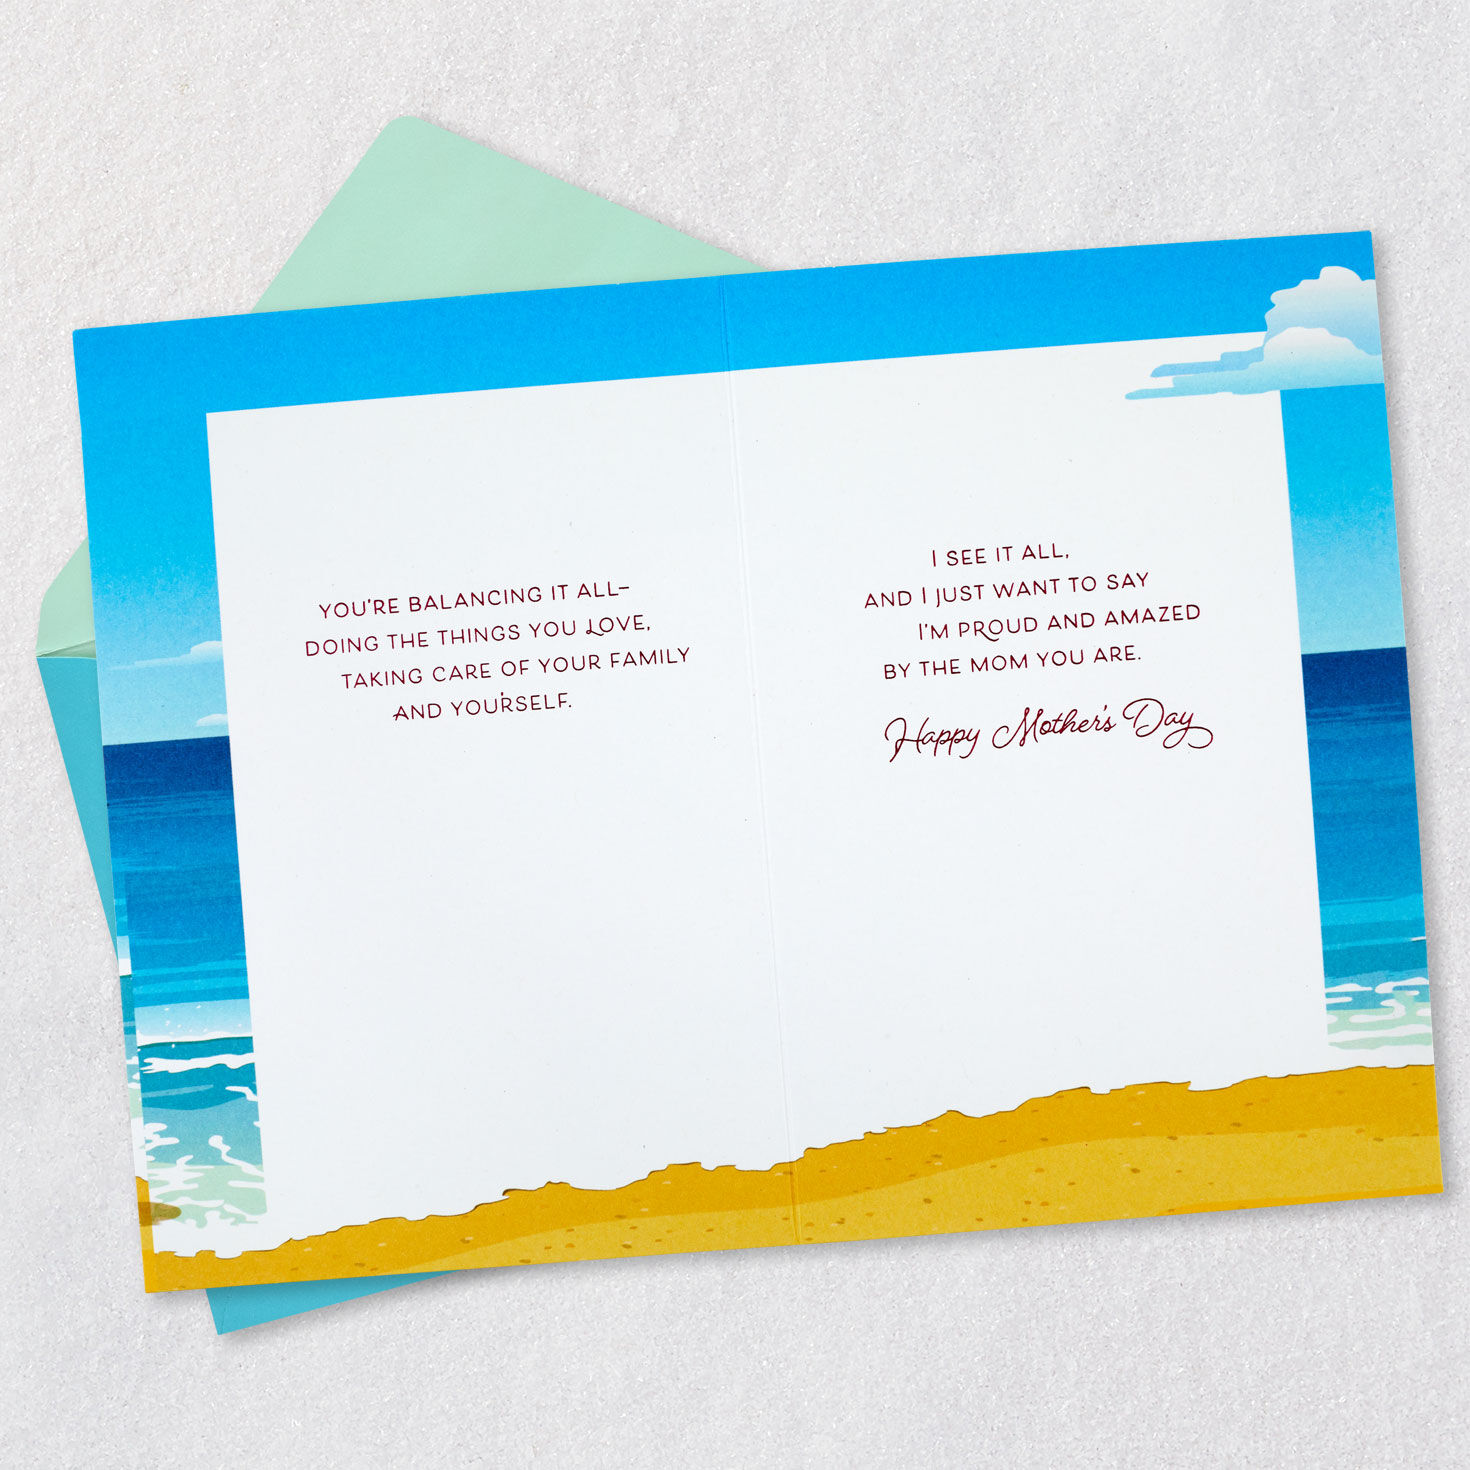 YOU'RE BALANCING IT ALL–
DOING THE THINGS YOU LOVE,
TAKING CARE OF YOUR FAMILY
AND YOURSELF.
I SEE IT ALL,
AND I JUST WANT TO SAY
I'M PROUD AND AMAZED
BY THE MOM YOU ARE.
Happy Mother's Day